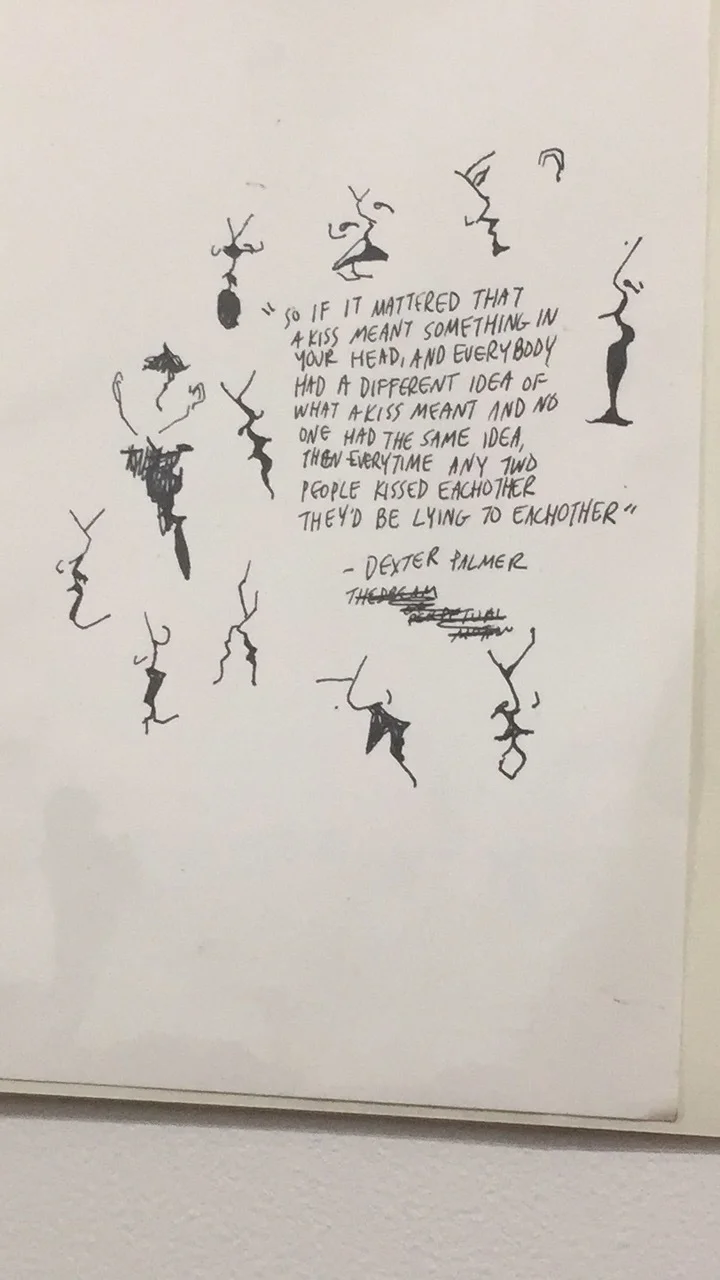 "SO IF IT MATTERED THAT
A KISS MEANT SOMETHING IN
YOUR HEAD, AND EVERYBODY
HAD A DIFFERENT IDEA OF
WHAT A KISS MEANT AND NO
ONE HAD THE SAME IDEA,
THEN EVERYTIME ANY TWO
PEOPLE KISSED EACHOTHER
THEY'D BE LYING TO EACHOTHER"
- DEXTER PALMER
THE DREAM
OF
PERPETUAL
MOTION